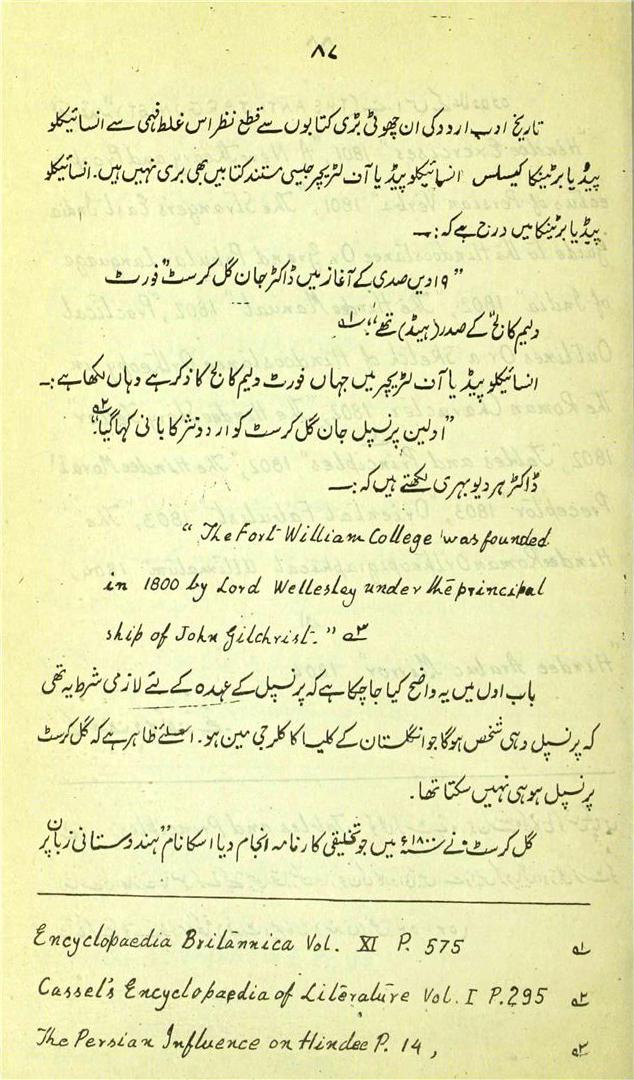 ۸۷
تاریخ ادب اردو کی ان چھوٹی بڑی کتابوں سے قطع نظر اس غلط فہمی سے انسائیکلو
پیڈیا برٹینکا کیسلس انسائیکلو پیڈیا آف لٹریچر جیسی مستند کتابیں بھی بری نہیں ہیں۔ انسائیکلو
پیڈیا برٹینکا میں درج ہے کہ :۔
”۱۹ ویں صدی کے آغاز میں ڈاکٹر جان گل کرسٹ“ فورٹ
ولیم کالج کے صدر (ہیڈ) تھے“ ؎۱
انسائیکلو پیڈیا آف لٹریچر میں جہاں فورٹ ولیم کالج کا ذکر ہے وہاں لکھا ہے :۔
”اولین پرنسپل جان گل کرسٹ کو اردو نثر کا بانی کہا گیا“ ؎۲
ڈاکٹر ہردیو بہری لکھتے ہیں کہ :۔
“ The Fort William College was founded
in 1800 by Lord Wellesley under the principal
ship of John Gilchrist.” ؎۳
باب اول میں یہ واضح کیا جا چکا ہے کہ پرنسپل کے عہدہ کے لئے لازمی شرط یہ تھی
کہ پرنسپل وہی شخص ہوگا جو انگلستان کے کلیسا کا کلرجی مین ہو۔ اسلئے ظاہر ہے کہ گل کرسٹ
پرنسپل ہو ہی نہیں سکتا تھا۔
گل کرسٹ نے ۱۸۰۰ء میں جو تخلیقی کارنامہ انجام دیا اسکا نام ”ہندوستانی زبان پر
Encyclopaedia Britannica Vol. XI P. 575 ؎۱
Cassel's Encyclopaedia of Literature Vol. I P.295 ؎۲
The Persian Influence on Hindee P. 14, ؎۳